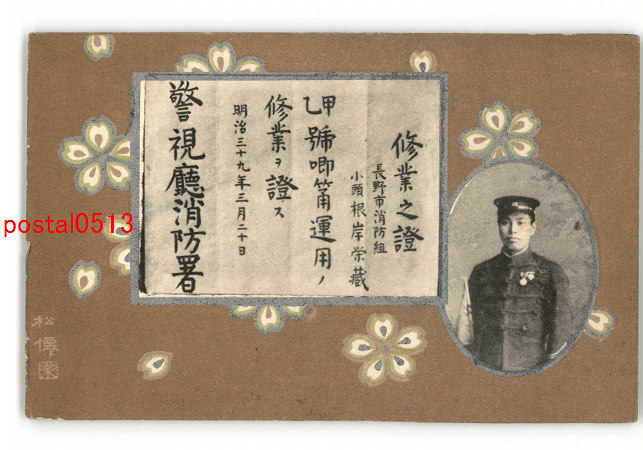 修業之證
長野市消防組
小頭 根岸栄藏
甲乙號喞筩運用ノ
修業ヲ證ス
明治三十九年三月二十日
警視廳消防署
postal0513